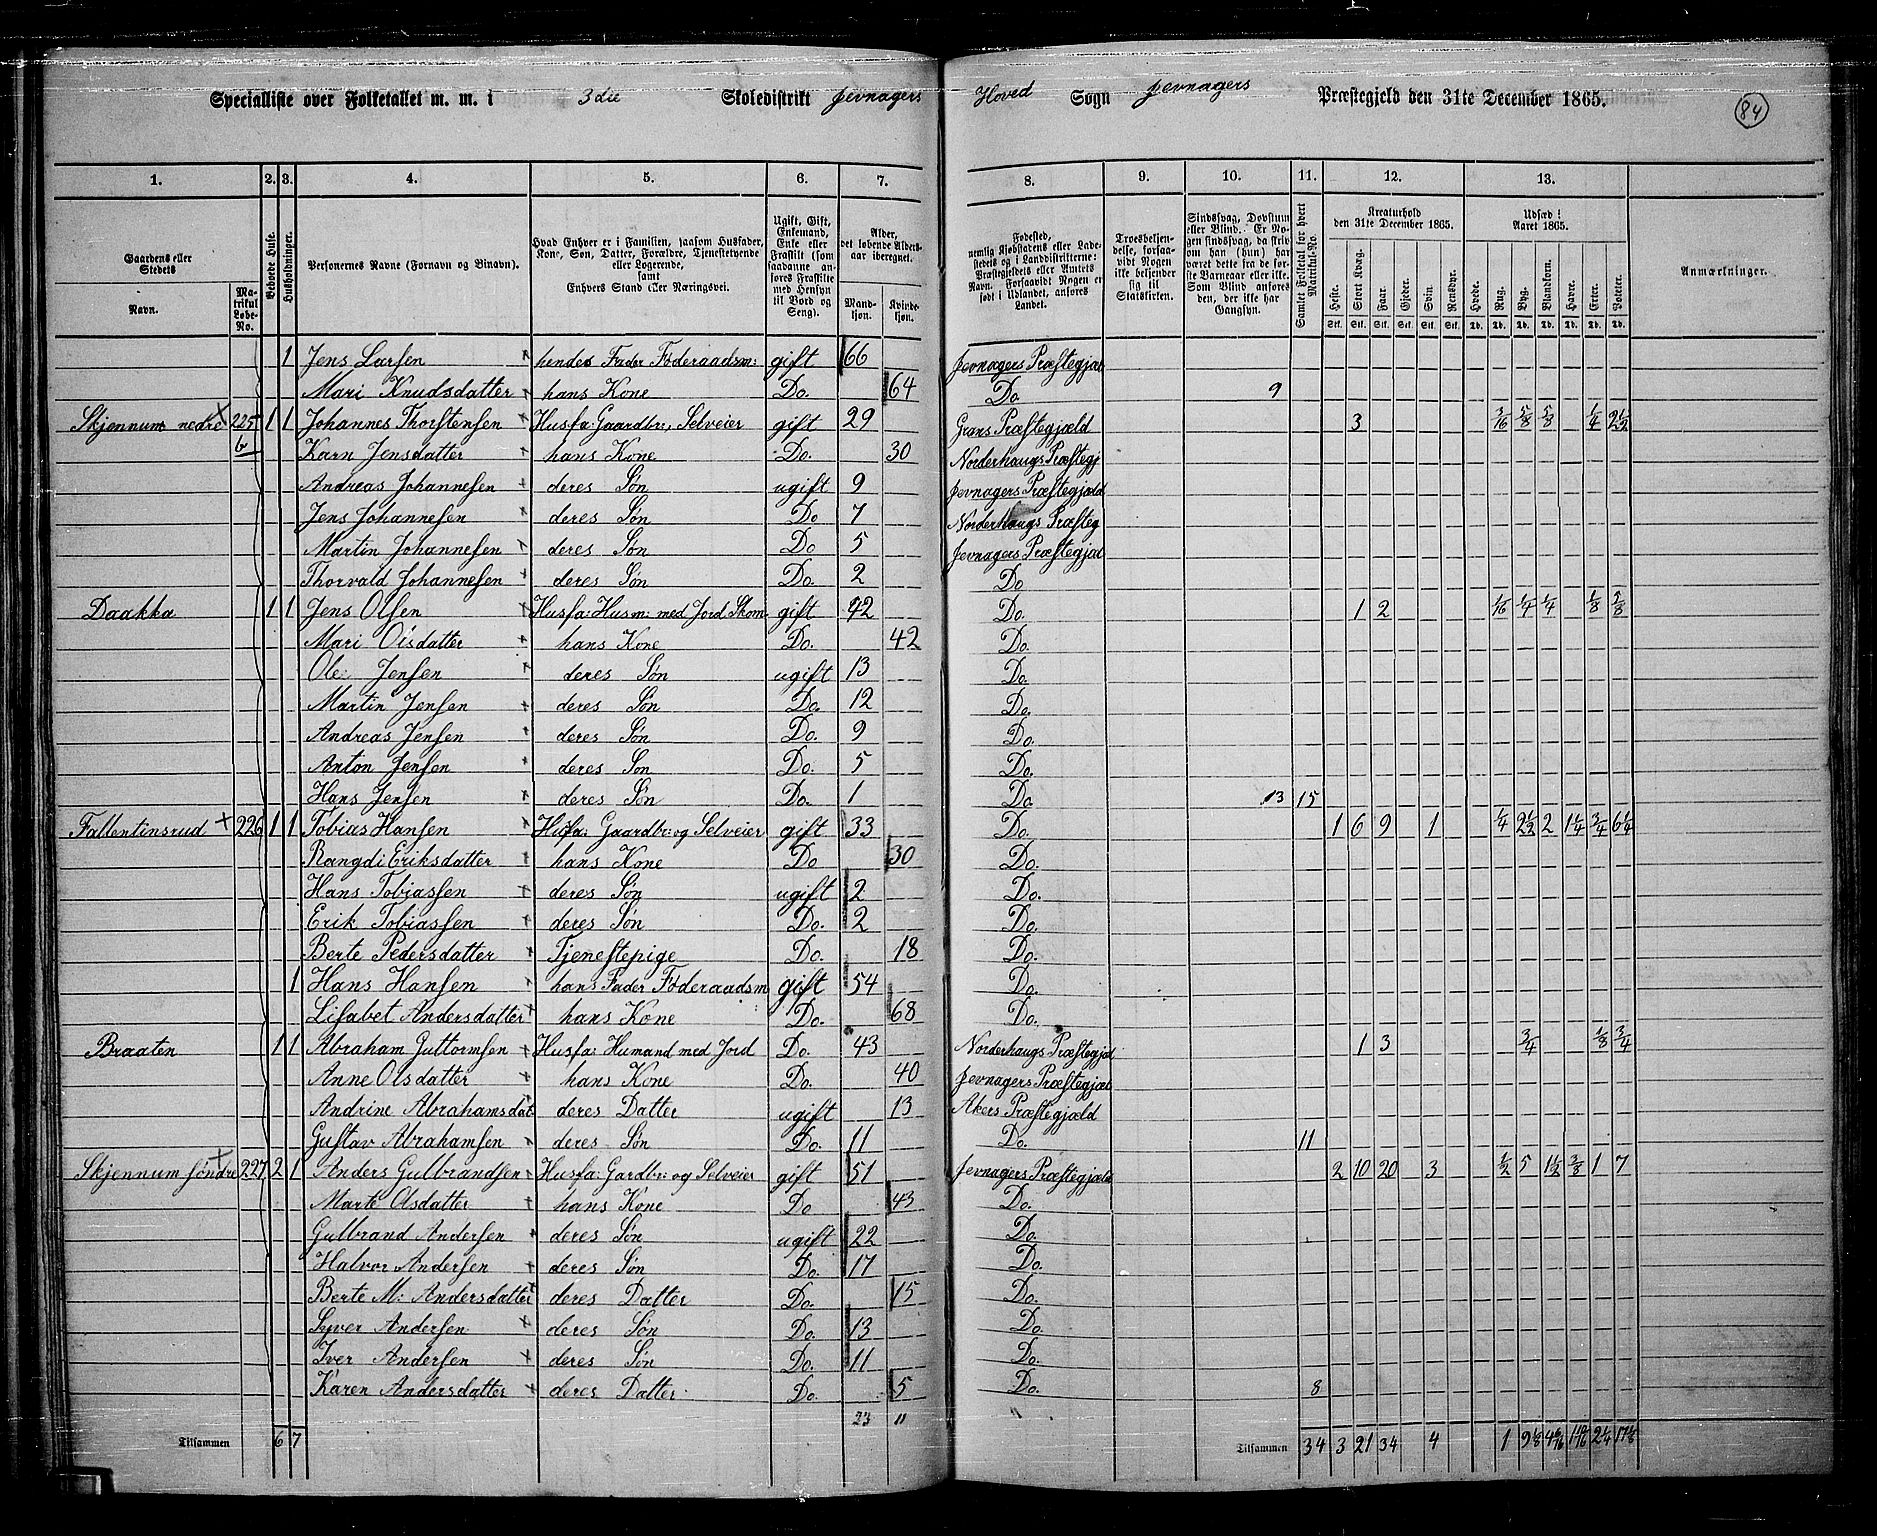 Specialliste over Folketallet m. m. i 3die Skoledistrikt Jevnagers Hoved Sogn Jevnagers Præstegjeld den 31te December 1865. 84
1. 2. 3. 4. 5. 6. 7. 8. 9. 10. 11. 12. 13.
Gaardens eller Stedets Navn. Matrikul Løbe-No. Beboede Huse. Husholdninger. Personernes Navne (Fornavn og Binavn). Hvad Enhver er i Familien, saasom Husfader, Kone, Søn, Datter, Forældre, Tjenestetyende eller Logerende, samt Enhvers Stand eller Næringsvei. Ugift, Gift, Enkemand, Enke eller Fraskilt (som saadanne anføres Fraskilte med Hensyn til Bord og Seng). Alder, det løbende Aldersaar iberegnet. Mandkjøn. Kvindekjøn.
Fødested, nemlig Kjøbstadens eller Ladestedets og i Landdistrikterne: Præstegjeldets eller Amtets Navn. Forsaavidt Nogen er født i Udlandet, anføres Landet. Troesbekjendelse, forsaavidt Nogen ikke bekjender sig til Statskirken. Sindssvag, Døvstum eller Blind. Er Nogen sindssvag, da skriv om han (hun) har været dette fra de første Barneaar eller ikke. Som Blind anføres den, der ikke har Gangsyn. Samlet Folketal for hvert Matrikul-No. Kreaturhold den 31te December 1865. Heste. Stort Kvæg. Faar. Gjeder. Svin. Rensdyr. Udsæd i Aaret 1865. Hvede. Rug. Byg. Blandkorn. Havre. Erter. Poteter. Anmærkninger.
Stk. Stk. Stk. Stk. Stk. Stk. Td. Td. Td. Td. Td. Td. Td.
1 Jens Larsen hendes Fader Föderaadsm: gift 66 Jevnagers Præstegjæl
Mari Knudsdatter hans Kone Do. 64 Do 9
Skjennum nedre 225 b 1 1 Johannes Thorstensen Husfa: Gaardbr:, Selveier gift 29 Grans Præstegjæld 3 3/16 5/8 5/8 1/4 2 1/2
Karn Jensdatter hans Kone Do. 30 Norderhaugs Præstegj
Andreas Johannesen deres Søn ugift 9 Jevnagers Præstegjæld
Jens Johannesen deres Søn Do 7 Norderhaugs Præsteg
Martin Johannesen deres Søn Do 5 Jevnagers Præstegjæl
Thorvald Johannesen deres Søn Do. 2 Do
Daakka 1 1 Jens Olsen Husfa: Husm: med Jord Skom gift 42 Do. 1 2 1/16 1/4 1/4 1/8 5/8
Mari Olsdatter hans Kone Do. 42 Do.
Ole Jensen deres Søn ugift 13 Do.
Martin Jensen deres Søn Do. 12 Do.
Andreas Jensen deres Søn Do. 9 Do.
Anton Jensen deres Søn Do. 5 Do.
Hans Jensen deres Søn Do. 1 Do 13 15
Fallentinsrud 226 1 1 Tobias Hansen Husfa: Gaardbr: og Selveier gift 33 Do. 1 6 9 1 1/4 2 1/2 2 1 1/4 3/4 6 1/4
Rangdi Eriksdatter hans Kone Do 30 Do.
Hans Tobiassen deres Søn ugift 2 Do.
Erik Tobiassen deres Søn Do. 2 Do.
Berte Pedersdatter Tjenestepige Do. 18 Do.
1 Hans Hansen hans Fader Föderaadsm gift 54 Do.
Lisabet Andersdatter hans Kone Do. 68 Do.
Braaten 1 1 Abraham Guttormsen Husfa: Humand med Jord Do. 43 Norderhaugs Præstegjæd 1 3 3/4 1/8 3/4
Anne Olsdatter hans Kone Do. 40 Jevnagers Præstegjæl
Andrine Abrahamsdat deres Datter ugift 13 Akers Præstegjæld
Gustav Abrahamsen deres Søn Do. 11 Do. 11
Skjennum söndre 227 2 1 Anders Gulbrandsen Husfa: Gardbr: og Selveier gift 51 Jevnagers Præstegjæld 2 10 20 3 1/2 5 1 1/2 3/8 1 7
Marte Olsdatter hans Kone Do 43 Do.
Gulbrand Andersen deres Søn ugift 22 Do.
Halvor Andersen deres Søn Do. 17 Do.
Berte M: Andersdatter deres Datter Do. 15 Do.
Syver Andersen deres Søn Do. 13 Do.
Iver Andersen deres Søn Do. 11 Do.
Karen Andersdatter deres Datter Do. 5 Do. 8
23 11
Tilsammen 6 7 Tilsammen 34 3 21 34 4 1 2 1/4